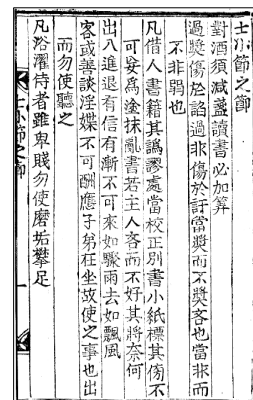 士小節之節
對酒須减盞讀書必加算
過奬傷於諂過非傷於訐當奬而不奬吝也當非而
不非弱也
凡借人書籍其譌謬處當校正別書小紙標其傍不
可妄爲塗抹亂書若主人吝而不好其將奈何
出入進退有信有漸不可來如驟雨去如飄風
客或善談淫媟不可酬應子弟在坐故使之事也出
而勿使聽之
凡浴濯侍者雖卑賤勿使磨垢攀足
士小節之節
一